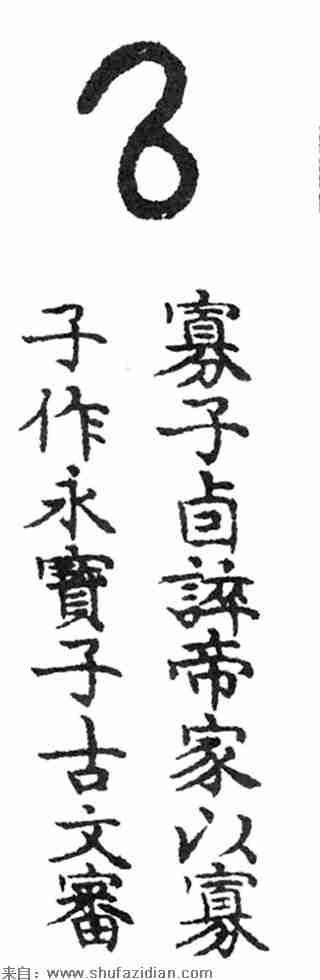 㠯
寡子卣誶帝家以寡
子作永寶子古文審
来自：www.shufazidian.com